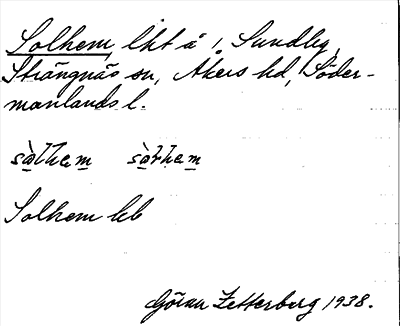 Solhem, lht å i Sundby,
Strängnäs sn, Åkers hd, Söder-
manlands l.
sòlhem sòlhem
Solhem kb
Göran Zetterberg 1938.